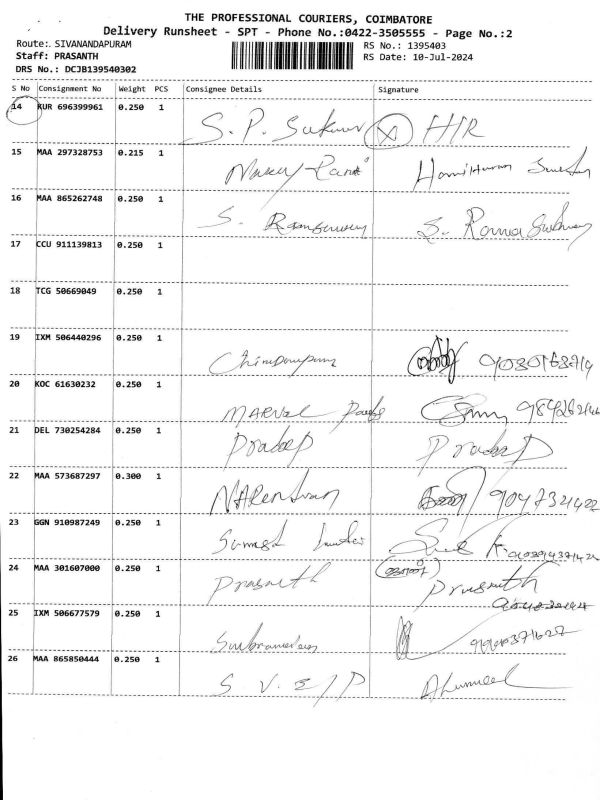 THE PROFESSIONAL COURIERS, COIMBATORE
Delivery Runsheet - SPT - Phone No.:0422-3505555 - Page No.:2
Route: SIVANANDAPURAM RS No.: 1395403
Staff: PRASANTH RS Date: 10-Jul-2024
DRS No.: DCJB139540302
S No Consignment No Weight PCS Consignee Details Signature
14 KUR 696399961 0.250 1
S. P. Sukumar HIR
15 MAA 297328753 0.215 1
16 MAA 865262748 0.250 1
S. S.
17 CCU 911139813 0.250 1
18 TCG 50669049 0.250 1
19 IXM 506440296 0.250 1
20 KOC 61630232 0.250 1
MARVEL
21 DEL 730254284 0.250 1
Pradeep Pradeep
22 MAA 573687297 0.300 1
NARENTRAN 9047321422
23 GGN 910987249 0.250 1
24 MAA 301607000 0.250 1
Prasanth Prasanth
25 IXM 506677579 0.250 1
26 MAA 865850444 0.250 1
S V. E / P